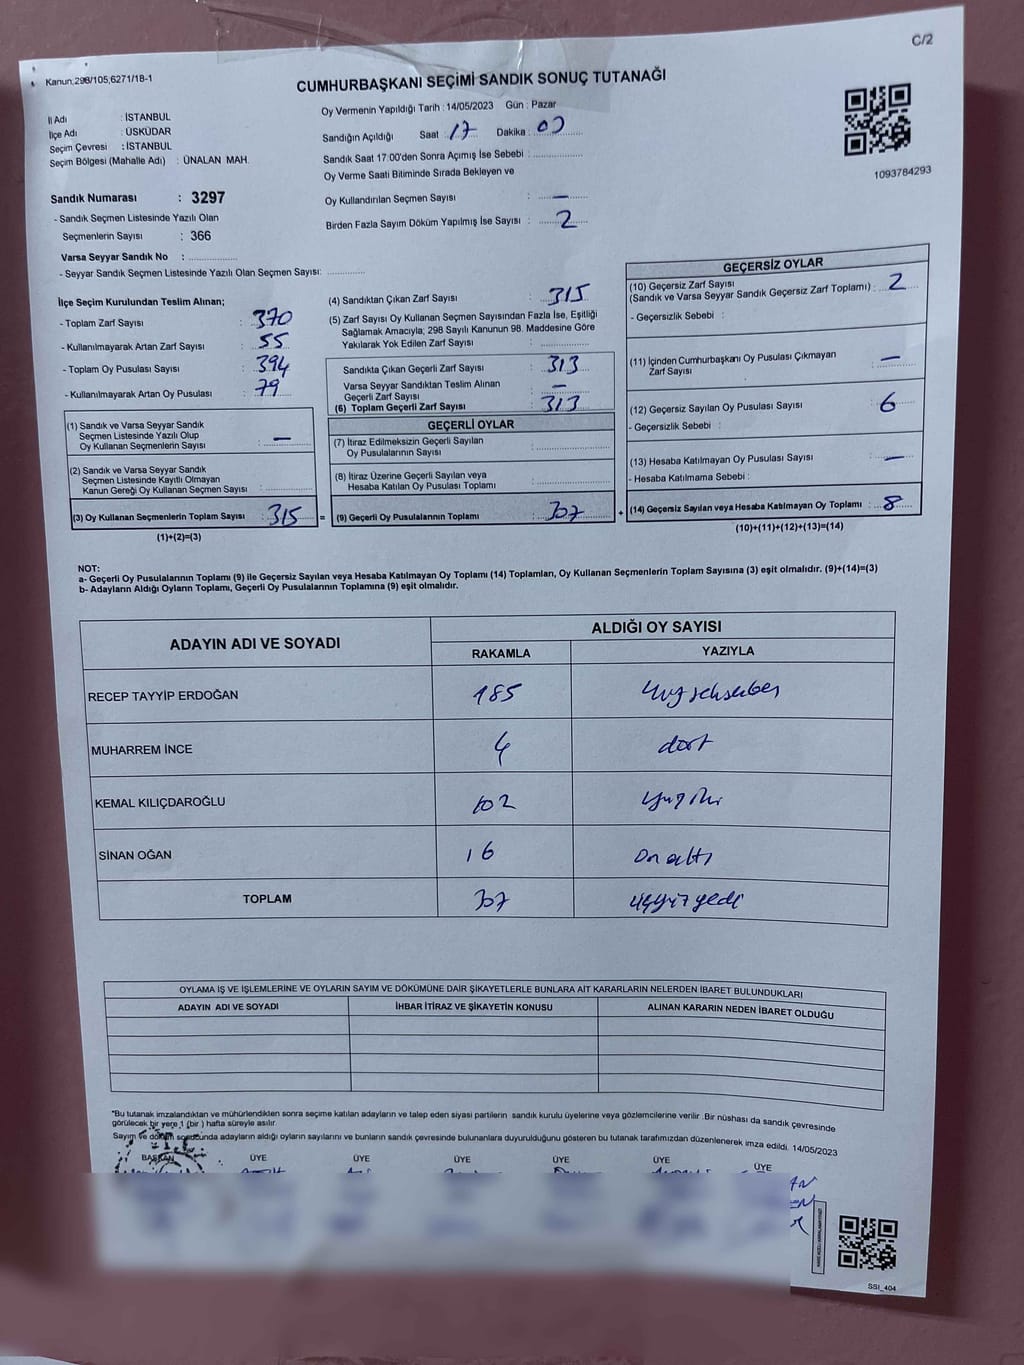 C/2
Kanun;298/105,6271/18-1
CUMHURBAŞKANI SEÇİMİ SANDIK SONUÇ TUTANAĞI
1093784293
İl Adı : İSTANBUL
İlçe Adı : ÜSKÜDAR
Seçim Çevresi : İSTANBUL
Seçim Bölgesi (Mahalle Adı) : ÜNALAN MAH.
Sandık Numarası : 3297
- Sandık Seçmen Listesinde Yazılı Olan
Seçmenlerin Sayısı : 366
Varsa Seyyar Sandık No :
- Seyyar Sandık Seçmen Listesinde Yazılı Olan Seçmen Sayısı:
Oy Vermenin Yapıldığı Tarih : 14/05/2023 Gün : Pazar
Sandığın Açıldığı Saat : 17 Dakika : 00
Sandık Saat 17:00'den Sonra Açımış İse Sebebi :
Oy Verme Saati Bitiminde Sırada Bekleyen ve
Oy Kullandırılan Seçmen Sayısı : —
Birden Fazla Sayım Döküm Yapılmış İse Sayısı : 2
İlçe Seçim Kurulundan Teslim Alınan;
- Toplam Zarf Sayısı : 370
- Kullanılmayarak Artan Zarf Sayısı : 55
- Toplam Oy Pusulası Sayısı : 394
- Kullanılmayarak Artan Oy Pusulası : 79
(1) Sandık ve Varsa Seyyar Sandık
Seçmen Listesinde Yazılı Olup
Oy Kullanan Seçmenlerin Sayısı : —
(2) Sandık ve Varsa Seyyar Sandık
Seçmen Listesinde Kayıtlı Olmayan
Kanun Gereği Oy Kullanan Seçmen Sayısı :
(3) Oy Kullanan Seçmenlerin Toplam Sayısı : 315 =
(1)+(2)=(3)
(4) Sandıktan Çıkan Zarf Sayısı : 315
(5) Zarf Sayısı Oy Kullanan Seçmen Sayısından Fazla İse, Eşitliği
Sağlamak Amacıyla; 298 Sayılı Kanunun 98. Maddesine Göre
Yakılarak Yok Edilen Zarf Sayısı :
Sandıkta Çıkan Geçerli Zarf Sayısı : 313
Varsa Seyyar Sandıktan Teslim Alınan
Geçerli Zarf Sayısı : —
(6) Toplam Geçerli Zarf Sayısı : 313
GEÇERLİ OYLAR
(7) İtiraz Edilmeksizin Geçerli Sayılan
Oy Pusulalarının Sayısı :
(8) İtiraz Üzerine Geçerli Sayılan veya
Hesaba Katılan Oy Pusulası Toplamı :
(9) Geçerli Oy Pusulalarının Toplamı : 307 +
GEÇERSİZ OYLAR
(10) Geçersiz Zarf Sayısı
(Sandık ve Varsa Seyyar Sandık Geçersiz Zarf Toplamı) : 2
- Geçersizlik Sebebi :
(11) İçinden Cumhurbaşkanı Oy Pusulası Çıkmayan
Zarf Sayısı : —
(12) Geçersiz Sayılan Oy Pusulası Sayısı : 6
- Geçersizlik Sebebi :
(13) Hesaba Katılmayan Oy Pusulası Sayısı : —
- Hesaba Katılmama Sebebi :
(14) Geçersiz Sayılan veya Hesaba Katılmayan Oy Toplamı : 8
(10)+(11)+(12)+(13)=(14)
NOT:
a- Geçerli Oy Pusulalarının Toplamı (9) ile Geçersiz Sayılan veya Hesaba Katılmayan Oy Toplamı (14) Toplamları, Oy Kullanan Seçmenlerin Toplam Sayısına (3) eşit olmalıdır. (9)+(14)=(3)
b- Adayların Aldığı Oyların Toplamı, Geçerli Oy Pusulalarının Toplamına (9) eşit olmalıdır.
ADAYIN ADI VE SOYADI ALDIĞI OY SAYISI
RAKAMLA YAZIYLA
RECEP TAYYİP ERDOĞAN 185 yüzseksenbeş
MUHARREM İNCE 4 dört
KEMAL KILIÇDAROĞLU 102 yüziki
SİNAN OĞAN 16 on altı
TOPLAM 307 üçyüz yedi
OYLAMA İŞ VE İŞLEMLERİNE VE OYLARIN SAYIM VE DÖKÜMÜNE DAİR ŞİKAYETLERLE BUNLARA AİT KARARLARIN NELERDEN İBARET BULUNDUKLARI
ADAYIN ADI VE SOYADI İHBAR İTİRAZ VE ŞİKAYETİN KONUSU ALINAN KARARIN NEDEN İBARET OLDUĞU
*Bu tutanak imzalandıktan ve mühürlendikten sonra seçime katılan adayların ve talep eden siyasi partilerin sandık kurulu üyelerine veya gözlemcilerine verilir. Bir nüshası da sandık çevresinde
görülecek bir yere 1 (bir ) hafta süreyle asılır.
Sayım ve döküm sonucunda adayların aldığı oyların sayılarını ve bunların sandık çevresinde bulunanlara duyurulduğunu gösteren bu tutanak tarafımızdan düzenlenerek imza edildi. 14/05/2023
BAŞKAN ÜYE ÜYE ÜYE ÜYE ÜYE
SSI_404